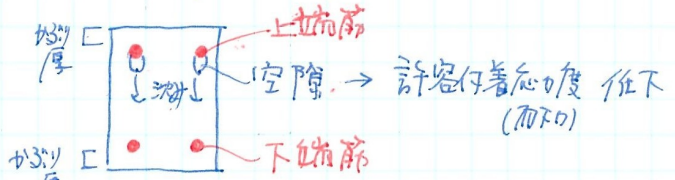 かぶり厚
上端筋
空隙 → 許容付着応力度 低下
↓沈み↓
かぶり
下端筋